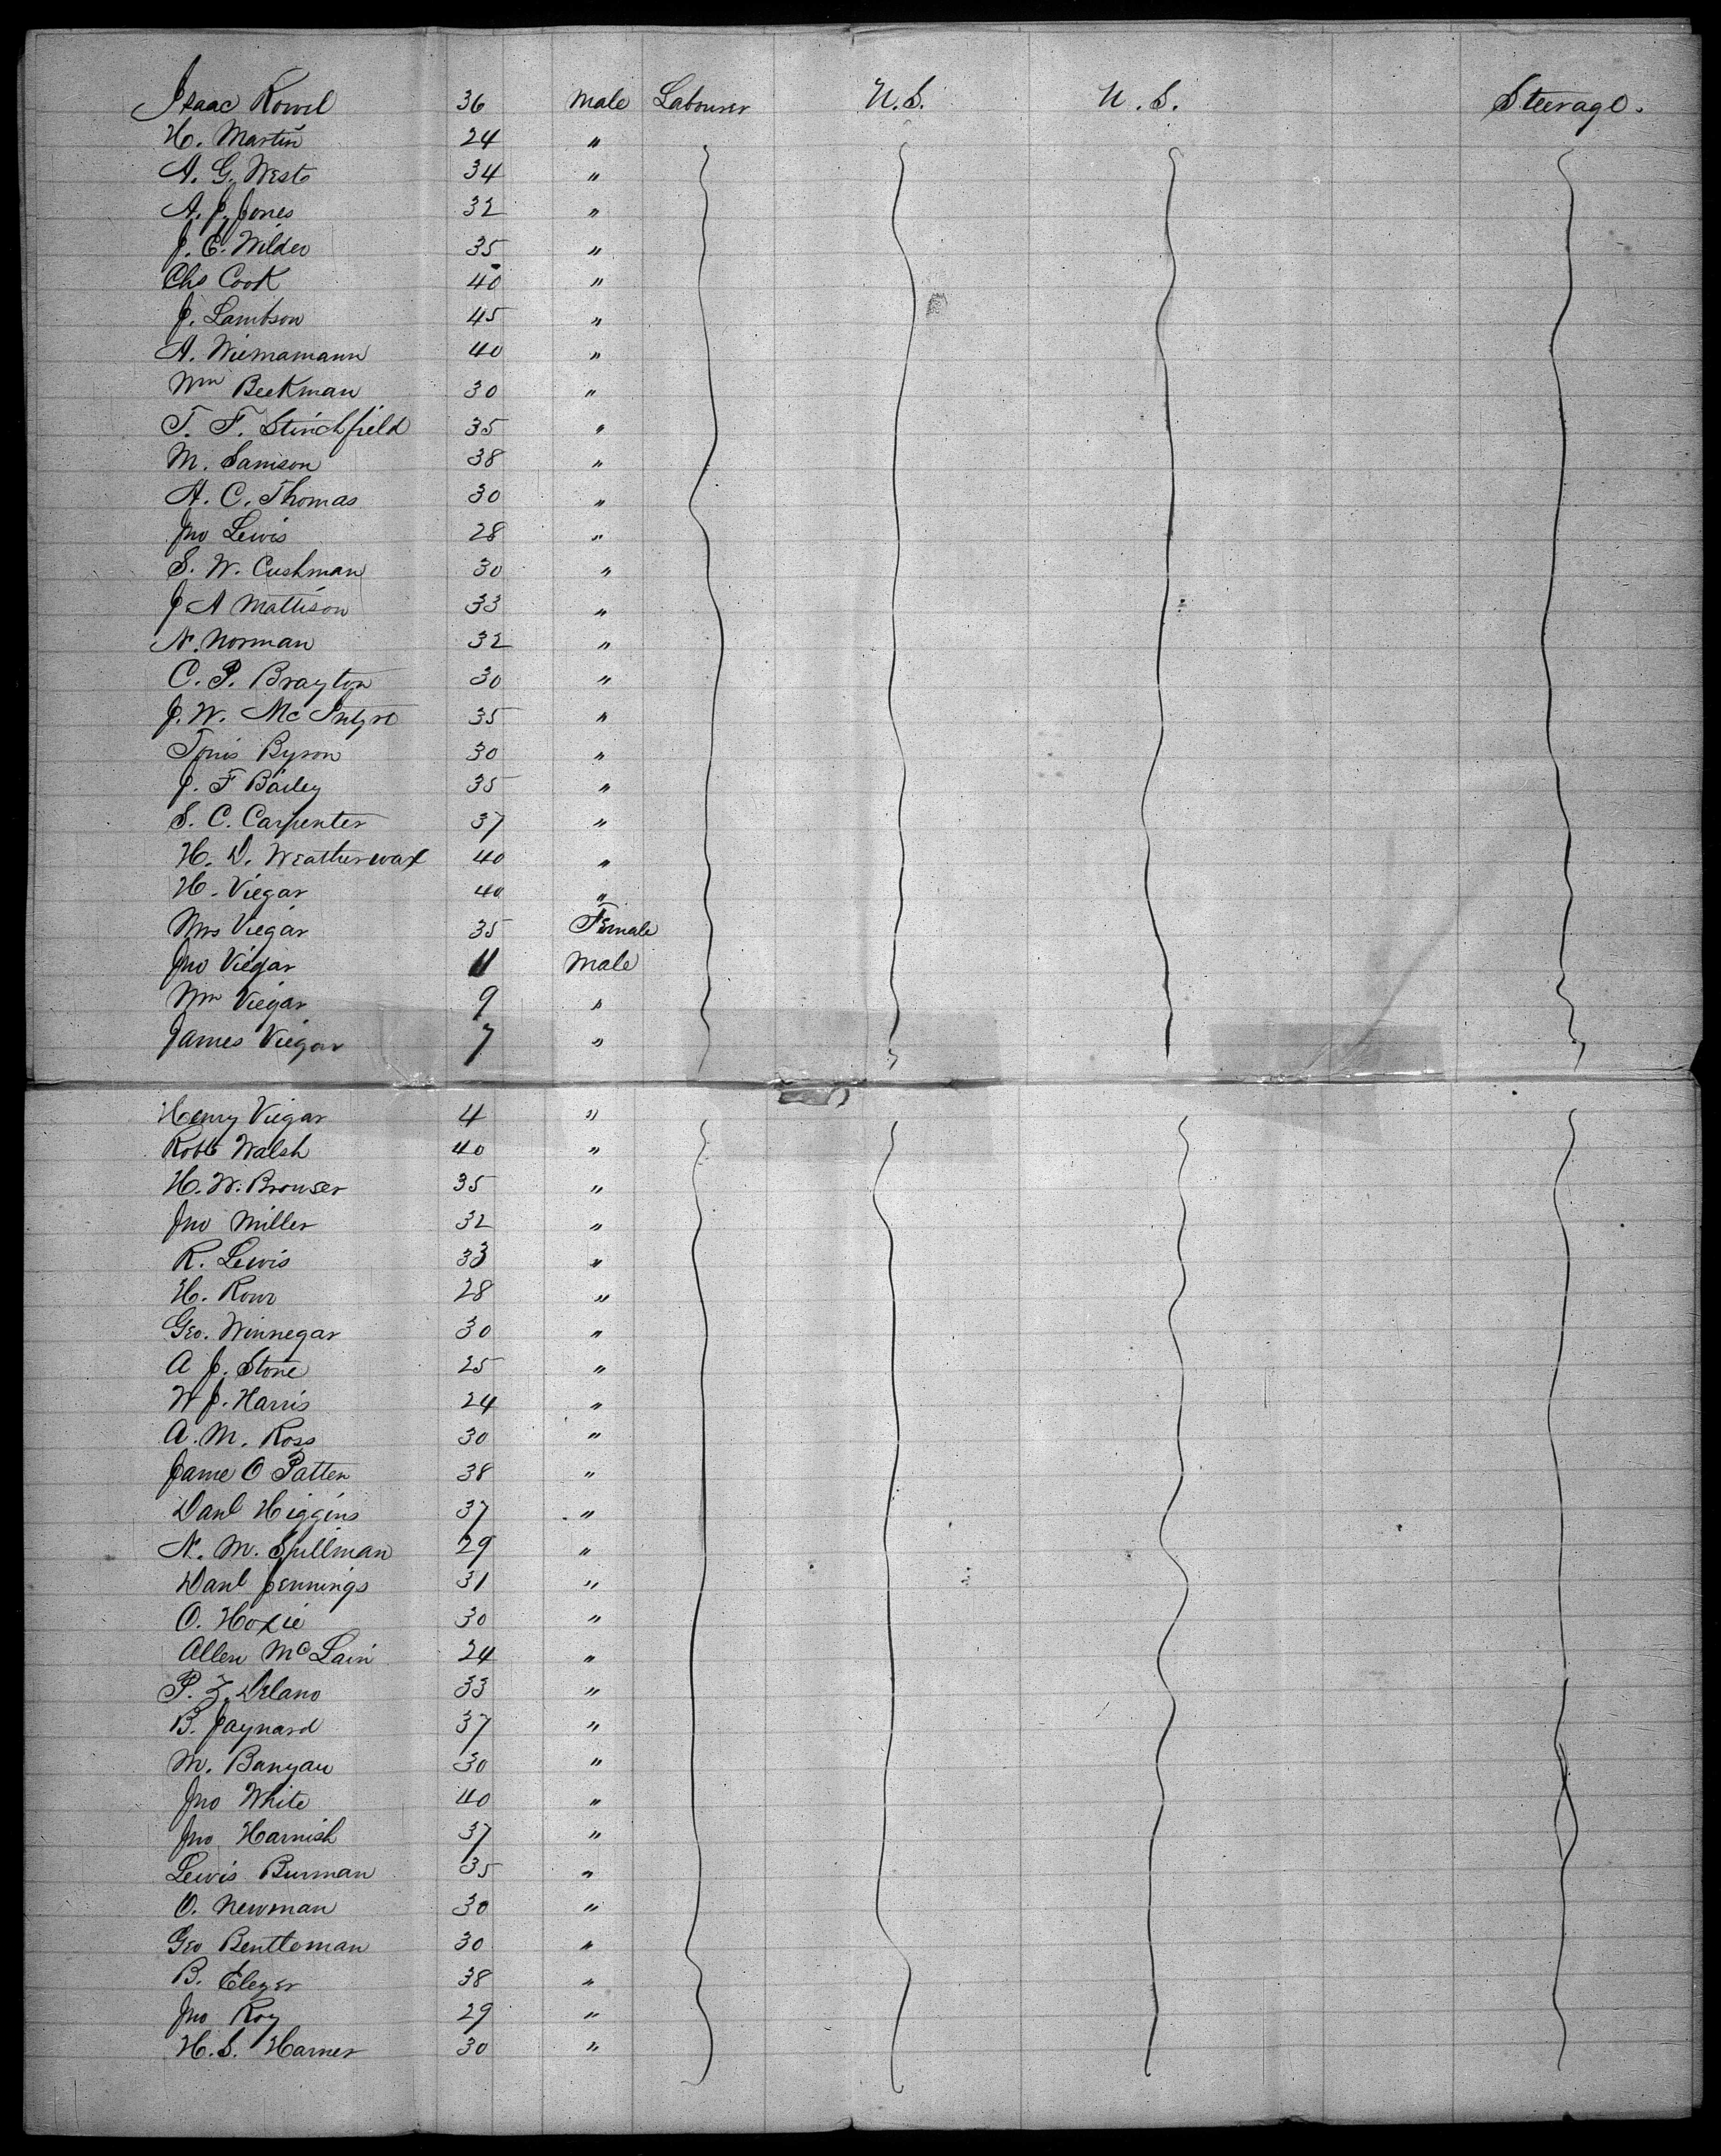 Isaac Rowel 36 Male Labourer U.S. U.S. Steerage.
H. Martin 24 "
A. G. West 34 "
A. J. Jones 32 "
J. E. Wilder 35 "
Chs Cook 40 "
J. Lambson 45 "
A. Wiemamann 40 "
Wm Beekman 30 "
T. F. Stinchfield 35 "
M. Samson 38 "
A. C. Thomas 30 "
Jno Lewis 28 "
S. W. Cushman 30 "
J A Mattison 33 "
N. Norman 32 "
C. P. Brayton 30 "
J. W. McIntyre 35 "
Byron 30 "
J. F Bailey 35 "
S. C. Carpenter 37 "
H. D. Weatherwax 40 "
H. Viegar 40 "
Mrs Viegar 35 Female
Jno Viegar 11 Male
Wm Viegar 9 "
James Viegar 7 "
Henry Viegar 4 "
Robt Walsh 40 "
H. W. Brouser 35 "
Jno Miller 32 "
R. Lewis 33 "
H. Rowe 28 "
Geo. Winnegar 30 "
A J. Stone 25 "
W J. Harris 24 "
A. M. Ross 30 "
Jame O Patten 38 "
Danl Higgins 37 "
N. M. Spillman 29 "
Danl Jennings 31 "
O. Hoxie 30 "
Allen McLain 24 "
P. Z. Delano 33 "
B. Jaynard 37 "
M. Banyan 30 "
Jno White 40 "
Jno Harnish 37 "
Lewis Burman 35 "
O. Newman 30 "
Geo Bentleman 30 "
B. Elezer 38 "
Jno Roy 29 "
H. S. Harner 30 "